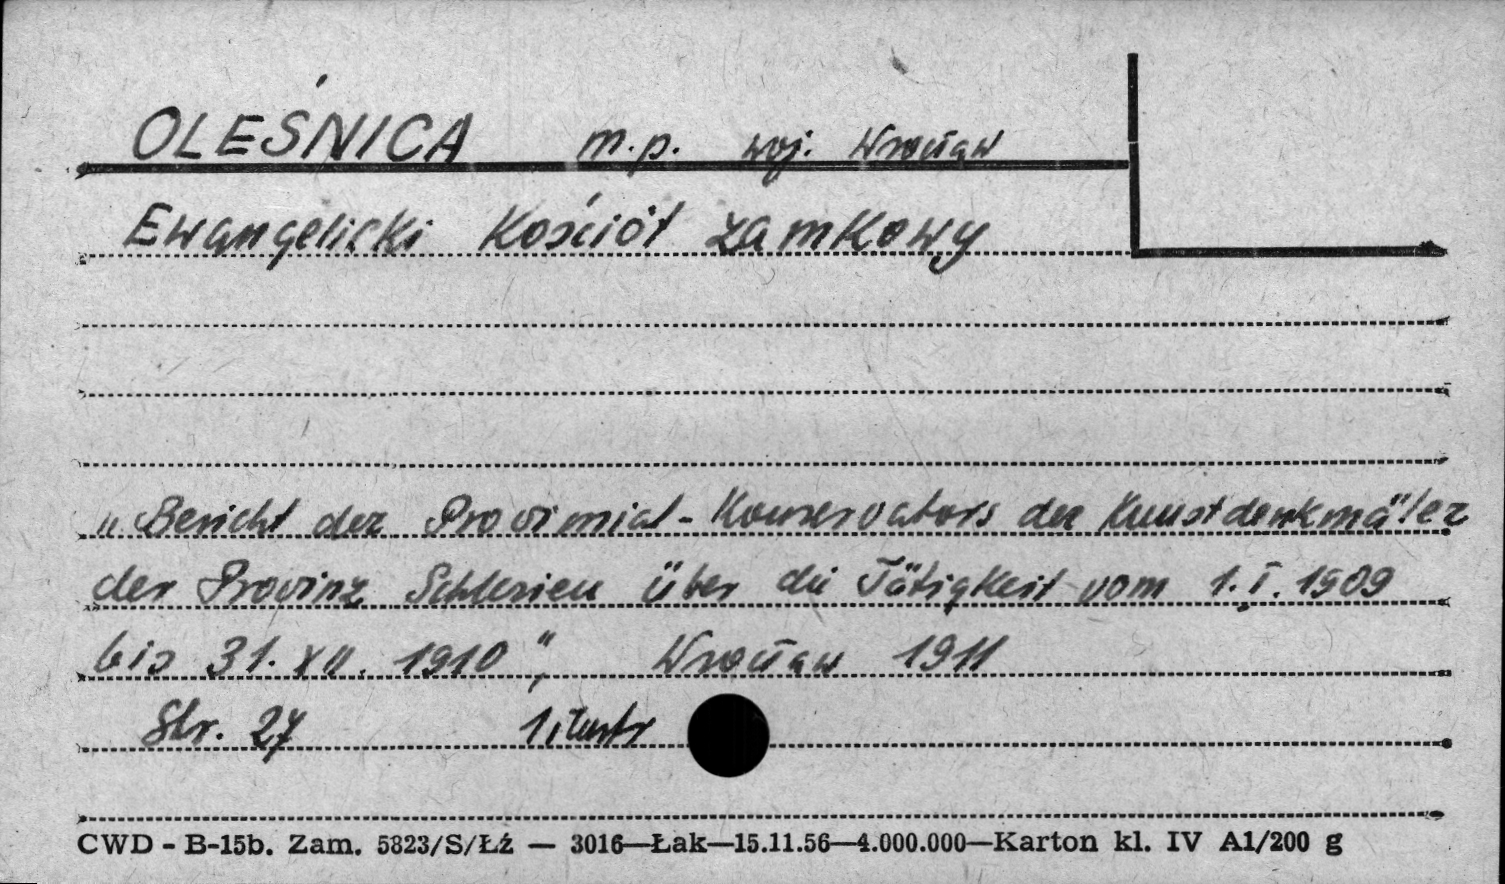 OLEŚNICA m.p. woj. Wrocław
Ewangelicki Kościół zamkowy
„Bericht der Provinzial-Konservators der Kunstdenkmäler
der Provinz Schlesien über die Tätigkeit vom 1.I.1909
bis 31.XII.1910", Wrocław 1911
Str. 27 1 ilustr
CWD - B-15b. Zam. 5823/S/Łź — 3016—Łak—15.11.56—4.000.000—Karton kl. IV A1/200 g